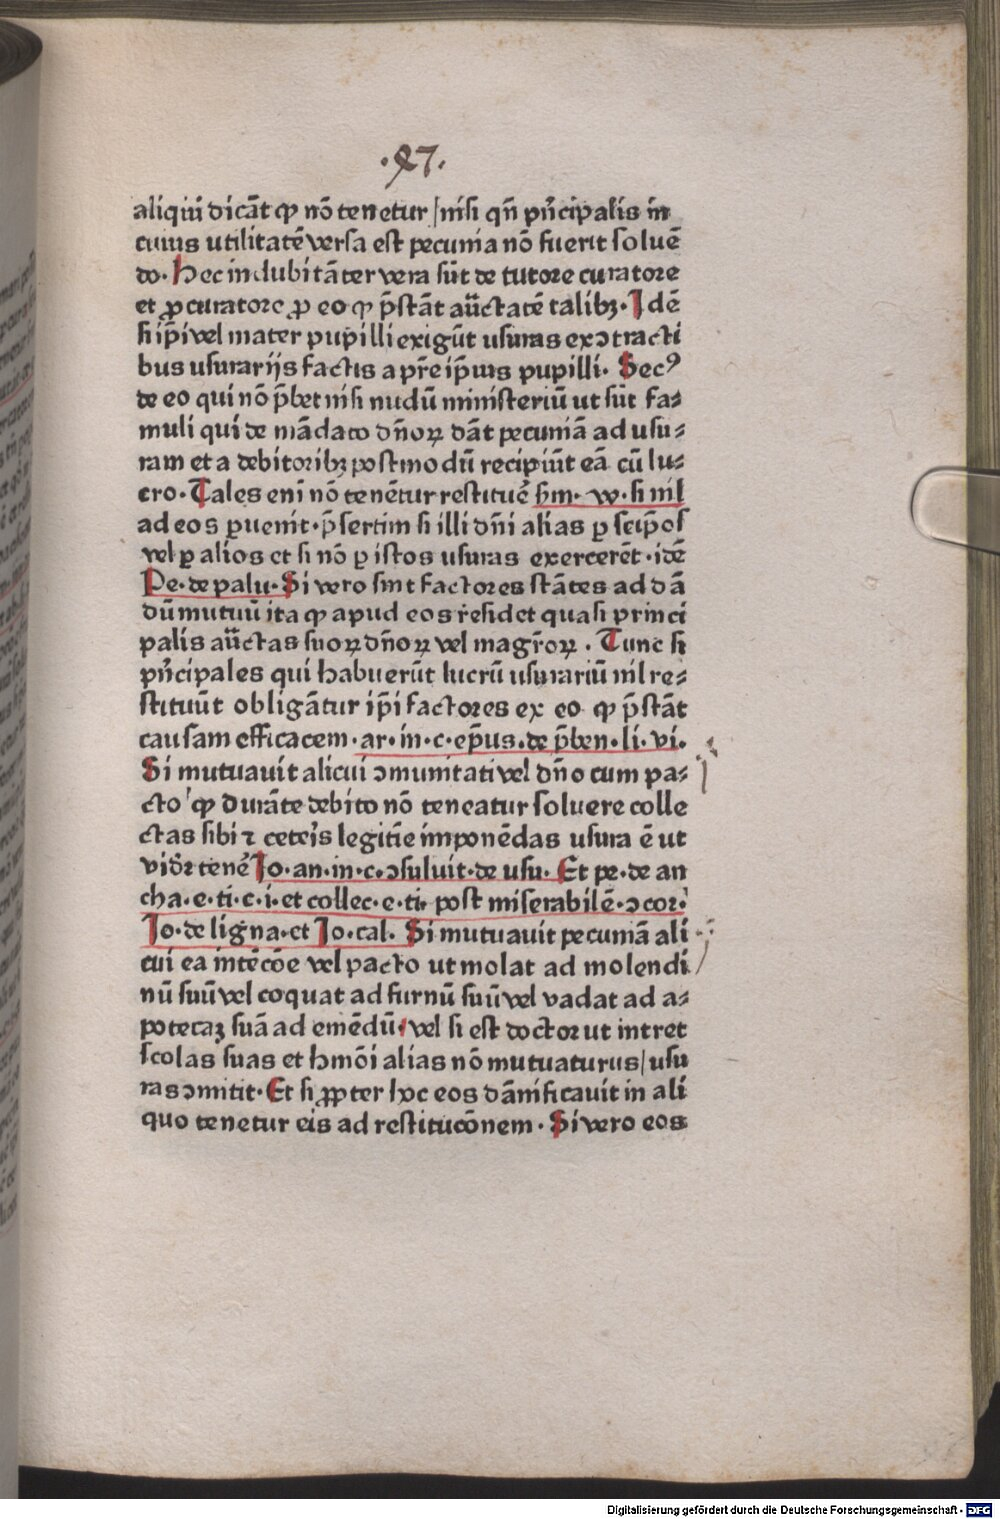 .47.
aliqui dicāt ꝙ nō tenetur / nisi qn̄ pn̄cipalis in
cuius utilitatē versa est pecunia nō fuerit soluē
do. Hec indubitāter vera sūt de tutore curatore
et ꝓcuratore ꝓ eo ꝙ p̄stāt auc̄tatē talibꝫ. Idē
si ip̄i vel mater pupilli exigūt usuras ex ↄtracti
bus usurarijs factis a pr̄e ip̄ius pupilli. Secꝰ
de eo qui nō p̄bet nisi nudū ministeriū ut sūt fa⸗
muli qui de mādato dn̄oꝝ dāt pecuniā ad usu⸗
ram et a debitoribꝫ postmodū recipiūt eā cū lu⸗
cro. Tales eni nō tenētur restituē hm. w. si nil
ad eos ꝑuenit. p̄sertim si illi dn̄i alias ꝑ seip̄os
vel ꝑ alios et si nō ꝑ istos usuras exercerēt. idē
Pe. de palu. Si vero sint factores stātes ad dā
dū mutuū ita ꝙ apud eos residet quasi princi
palis auc̄tas suoꝝ dn̄oꝝ vel magr̄oꝝ. Tunc si
pn̄cipales qui habuerūt lucrū usurariū nil re⸗
stituūt obligātur ip̄i factores ex eo ꝙ p̄stāt
causam efficacem. ar. in. c. ep̄us. de p̄ben. li. vi.
Si mutuauit alicui ↄmunitati vel dn̄o cum pa⸗
cto ꝙ durāte debito nō teneatur soluere colle
ctas sibi ⁊ ceteis legitīe imponēdas usura ē ut
vidr̄ tenē Jo. an. in. c. ↄsuluit. de usu. Et pe. de an
cha. e. ti. c. i. et collec. e. ti. post miserabilē. ↄcor.
Jo. de ligna. et Jo. cal. Si mutuauit pecuniā ali
cui ea intēcōe vel pacto ut molat ad molendi
nū suū vel coquat ad furnū suū vel vadat ad a⸗
potecaꝫ suā ad emēdū / vel si est doctor ut intret
scolas suas et hmōi alias nō mutuaturus / usu
ras ↄmitit. Et si ꝓpter hoc eos dānificauit in ali
quo tenetur eis ad restitucōnem. Si vero eos
Digitalisierung gefördert durch die Deutsche Forschungsgemeinschaft - DFG